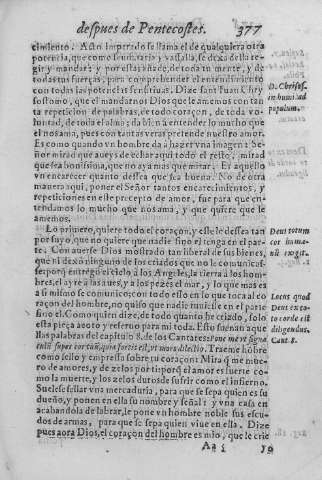 despues de Pentecostes. 377
cimiento. Acto Imperado se llama el de qualquiera otra
potencia, que como sumitaria y vassalla, se dexa della re-
gir y mandar: y por esta añade, de toda tu mente, y de
todas tus fuerças, para comprehender el entendimiento
con todas las potencias sensitiuas. Dize sant Iuan Chry
sostomo, que el mandarnos Dios que le amemos con tan
ta repeticion de palabras, de todo coraçon, de toda vo-
luntad, de toda el alma: da bien à entender lo mucho que
el nos ama, pues con tantas veras pretende nuestro amor.
Es como quando vn hombre da à hazer vna imagen: Se-
ñor mirad que aueys de echar aqui todo el resto, mirad
que sea bonissima, que no aya mas que mirar. Es aquello
vn encarecer quanto dessea que sea buena. No de otra
manera aqui, poner el Señor tantos encarecimientos, y
repeticiones en este precepto de amor, fue para que en-
tendamos lo mucho que nos ama, y que quiere que le
amemos.
Lo primero, quiere todo el coraçon, y esse le dessea tan
por suyo, que no quiere que nadie sino el tenga en el par-
te. Con auerse Dios mostrado tan liberal de sus bienes,
que ni dexò ninguno de los criados que no le comunicas-
se, porque entregò el cielo à los Angeles, la tierra à los hom-
bres, el ayre a las aues, y a los pezes el mar, y lo que mas es
a si mismo se comunicò: con todo esso en lo que toca al co
raçon del hombre, no quiso que nadie tuuiesse en el parte
sino el. Como quien dize, de todo quanto he criado, solo
esta pieça acoto y reseruo para mi toda. Esto suenan aque
llas palabras del capitulo 8. de los Cantares: Pone me vt signa
culum super cor tuum, quia fortis est, vt mors dilectio. Traeme hōbre
como sello y empressa sobre tu coraçon: Mira que me mue-
ro de amores, y de zelos por que el amor es fuerte co-
mo la muerte, y los zelos duros de sufrir como el infierno.
Suelese sellar vna mercaduria, para que se sepa quien es su
dueño, y ponen en ella su nombre y señal: y vna casa en
acabandola de labrar, le pone vn hombre noble sus escu-
dos de armas, para que se sepa quien viue en ella. Dize
pues aora Dios, el coraçon del hombre es mio, que le crie
Aa 5 yo
D. Chrisos.
in humi ad
populum.
Deus totum
cor huma-
nū exigit.
Deus ex to-
to corde est
diligendus.
Cant. 8.